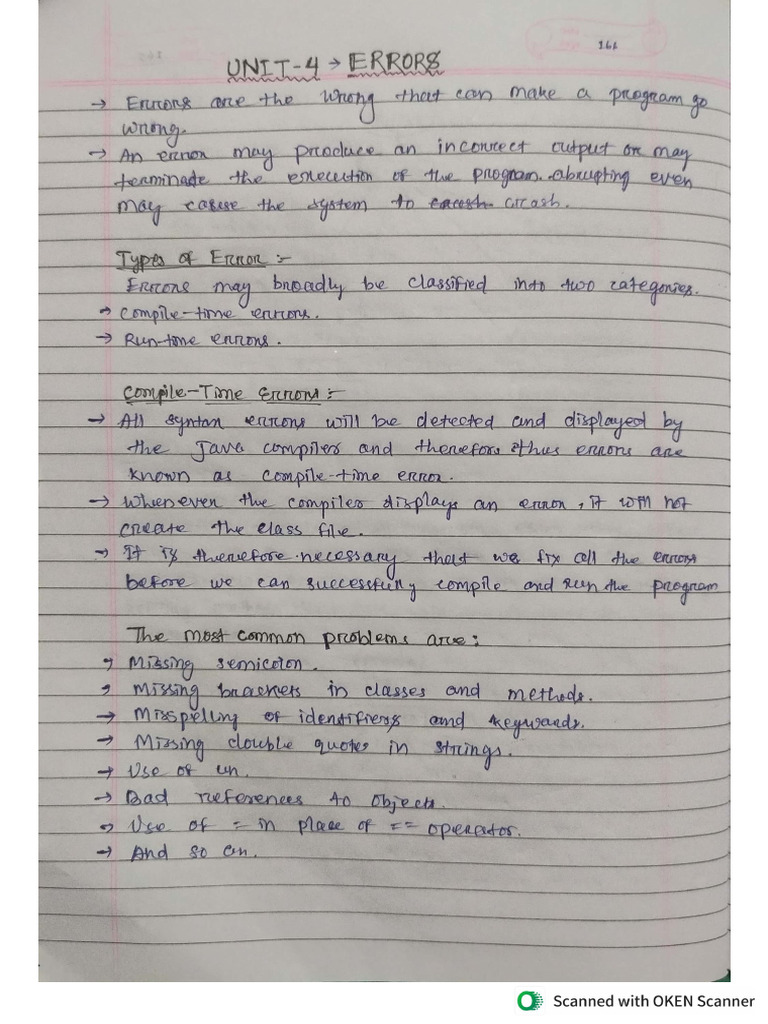 166
UNIT-4 → ERRORS
→ Errors are the wrong that can make a program go
wrong.
→ An error may produce an incorrect output or may
terminade the execution of the program abrupting even
may cause the system to crash.
Types of Error :-
Errors may broadly be classified into two categories.
→ Compile-time errors.
→ Run-time errors.
Compile-Time Errors :-
→ All syntan errors will be detected and displayed by
the Java compiler and therefore thus errors are
known as compile-time error.
→ Whenever the compiler displays an error, it will not
create the class file.
→ It is therefore necessary that we fix all the errors
before we can successfully compile and run the program
The most common problems are:
→ Missing semicolon.
→ Missing brackets in classes and methods.
→ Misspelling of identifiers and keywards.
→ Missing double quotes in strings.
→ Use of un.
→ Bad references to objects.
→ Use of = in place of == operator.
→ And so on.
Scanned with OKEN Scanner